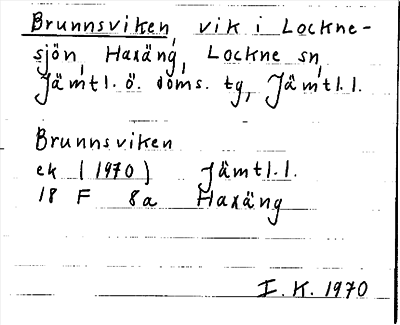 Brunnsviken, vik i Lockne-
sjön, Haxäng, Lockne sn,
Jämtl. ö. doms. tg, Jämtl. l.
Brunnsviken
ek (1970) Jämtl. l.
18 F 8a Haxäng
I. K. 1970